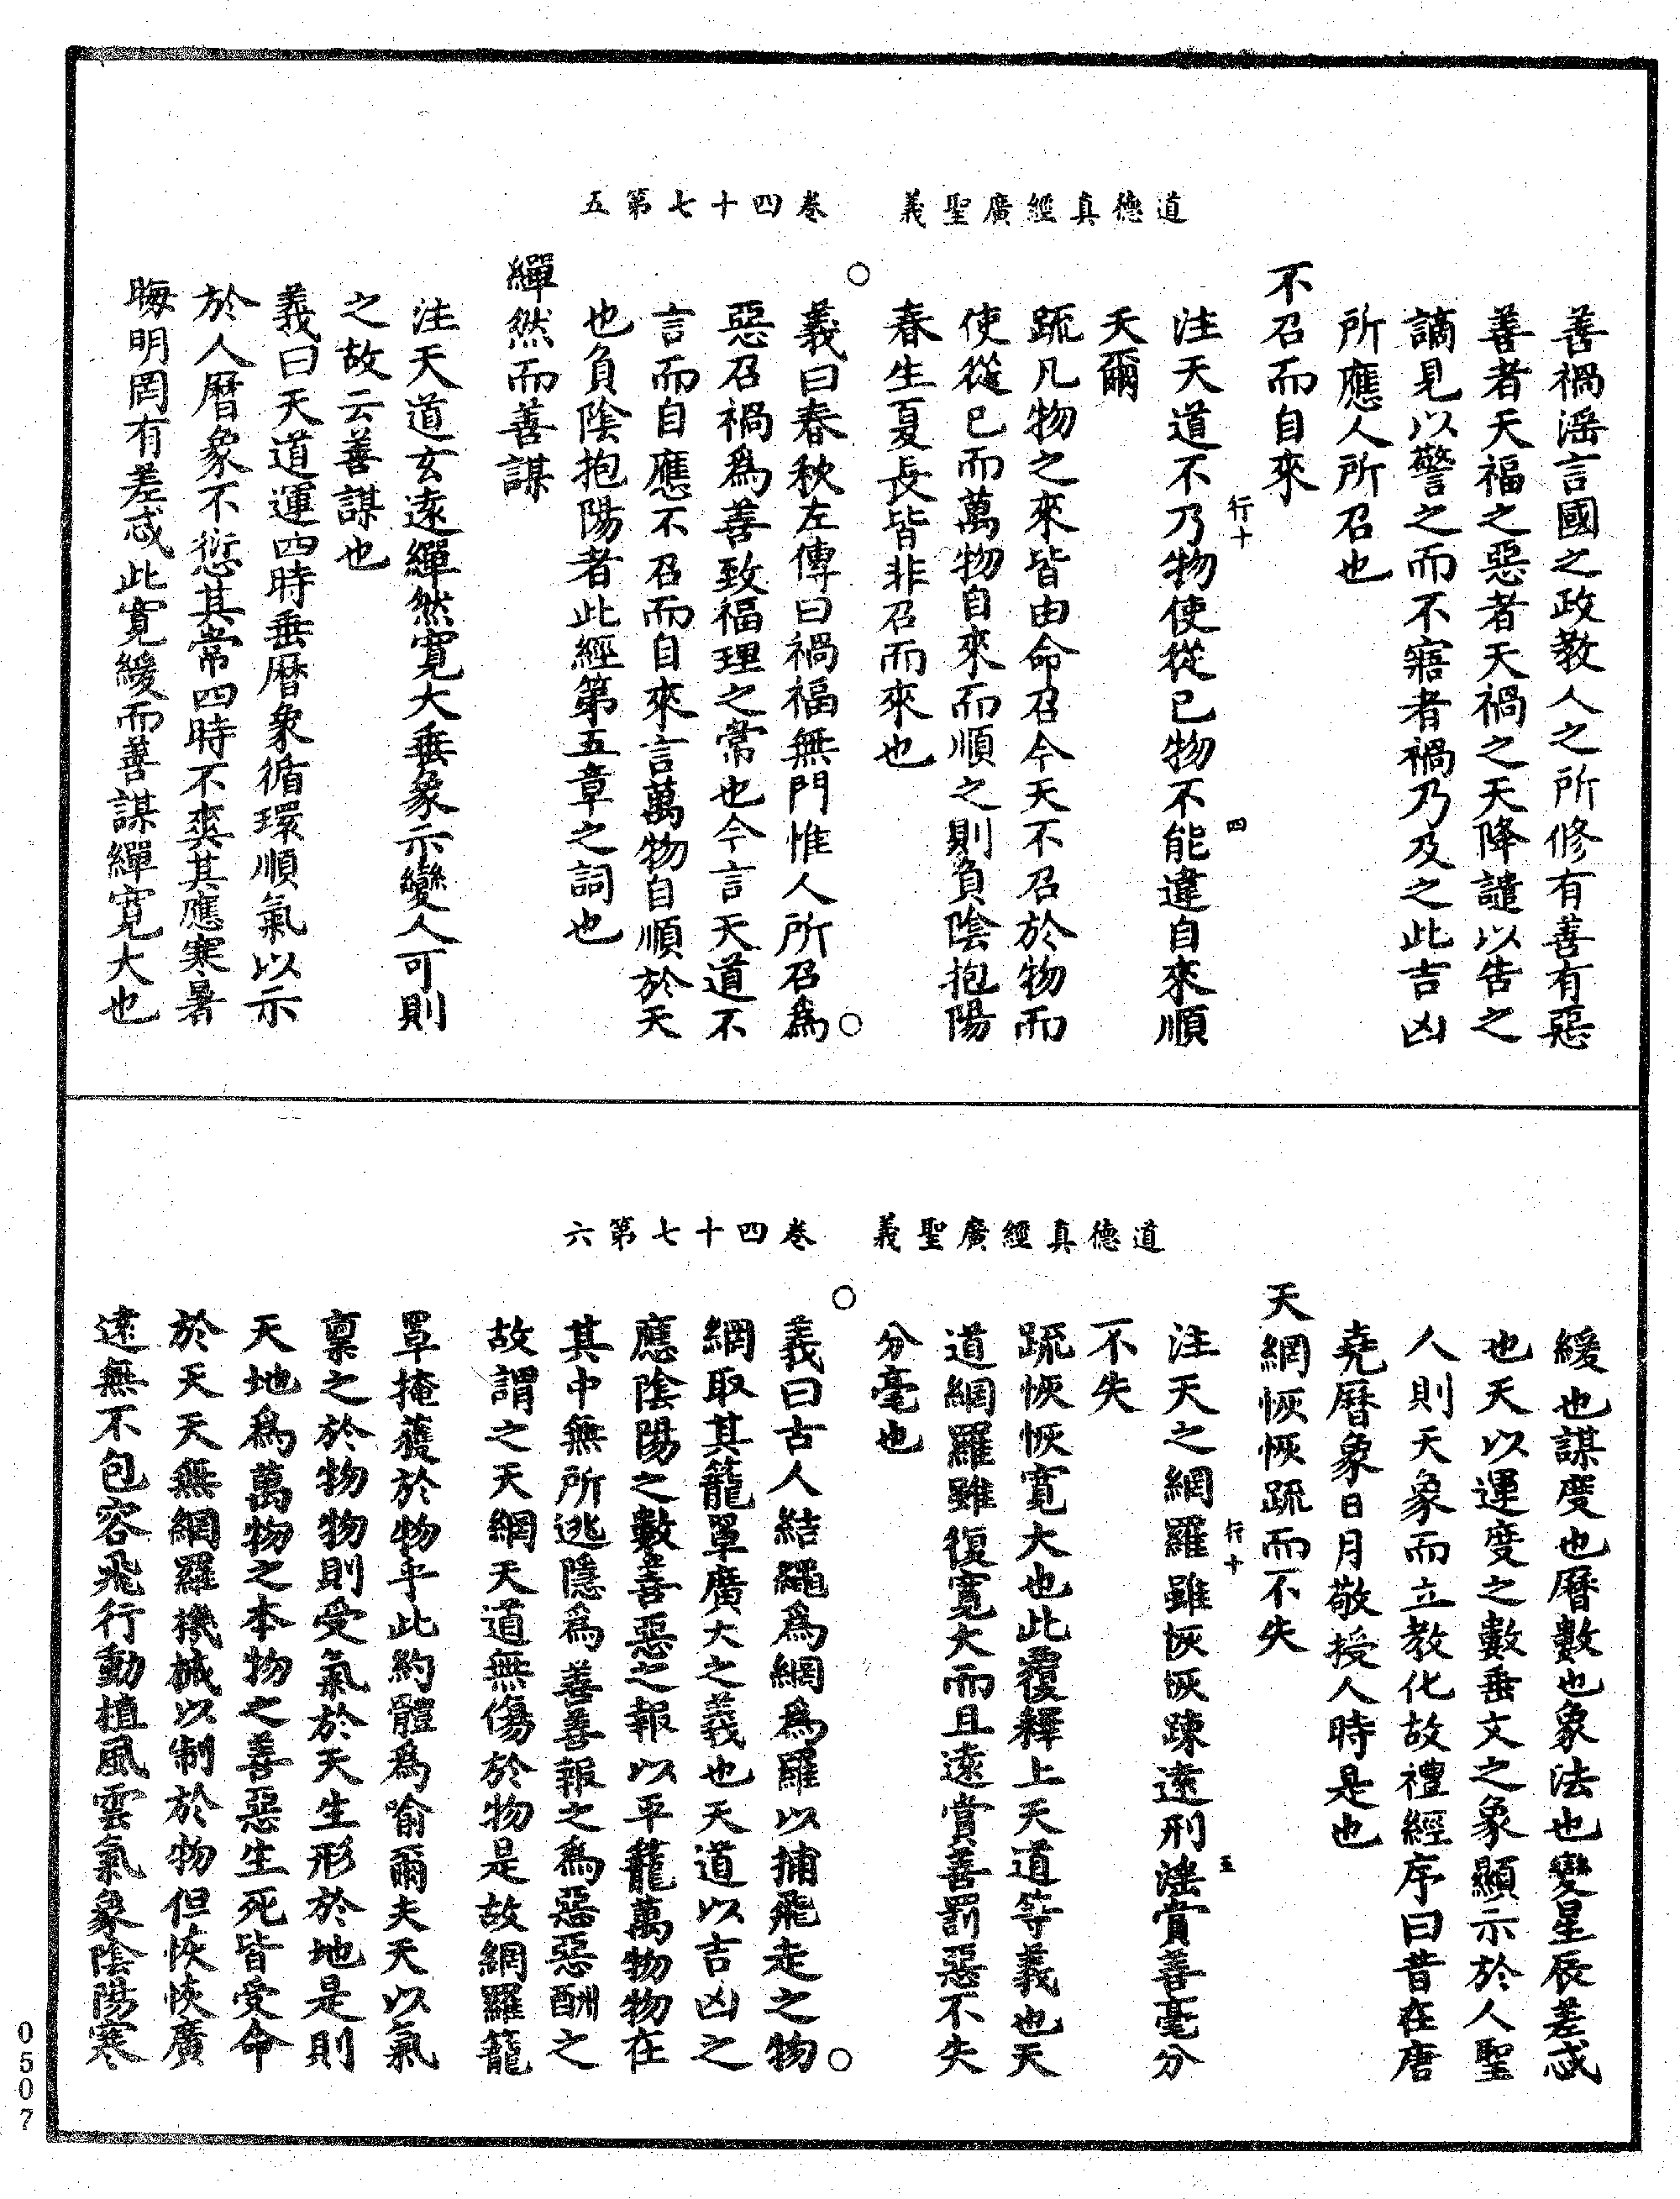 道德真經廣聖義　卷四十七第五
善禍滛言國之政教人之所修有善有惡
善者天福之惡者天禍之天降譴以告之
謫見以警之而不寤者禍乃及之此吉凶
所應人所召也
不召而自來
注天道不乃物使從已物不能違自來順
天爾
行十
四
疏凡物之來皆由命召今天不召於物而
使從已而萬物自來而順之則負陰抱陽
春生夏長皆非召而來也
義曰春秋左傳曰禍福無門惟人所召爲
惡召禍爲善致福理之常也今言天道不
言而自應不召而自來言萬物自順於天
也負陰抱陽者此經第五章之詞也
繟然而善謀
注天道玄遠繟然寬大垂象示變人可則
之故云善謀也
義曰天道運四時垂曆象循環順氣以示
於人曆象不愆其常四時不爽其應寒暑
晦明罔有差忒此寬緩而善謀繟寬大也
道德真經廣聖義　卷四十七第六
緩也謀度也曆數也象法也變星辰差忒
也天以運度之數垂文之象顯示於人聖
人則天象而立教化故禮經序曰昔在唐
堯曆象日月敬授人時是也
天網恢恢疏而不失
注天之網羅雖恢恢踈遠刑滛賞善毫分
不失
行十
五
疏恢恢寛大也此覆釋上天道等義也天
道網羅雖復寬大而且遠賞善罰惡不失
分毫也
義曰古人結繩爲網爲羅以捕飛走之物
網取其籠罩廣大之義也天道以吉凶之
應陰陽之數善惡之報以平籠萬物物在
其中無所逃隱爲善善報之爲惡惡酬之
故謂之天網天道無傷於物是故網羅籠
罩掩獲於物乎此約體爲喻爾夫天以氣
稟之於物物則受氣於天生形於地是則
天地爲萬物之本物之善惡生死皆受命
於天天無網羅機械以制於物但恢恢廣
遠無不包容飛行動植風雲氣象陰陽寒
0507